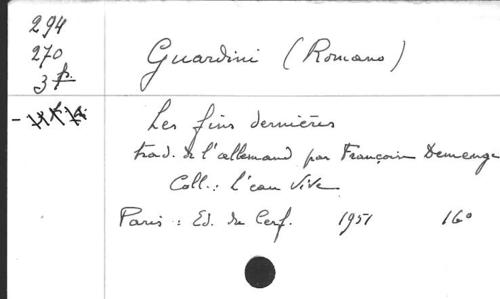 294
270
3 p.
Guardini (Romano)
Les fins dernières
trad. de l'allemand par François Demenge
Coll.: l'eau vive
Paris : Ed. du Cerf. 1951 16°